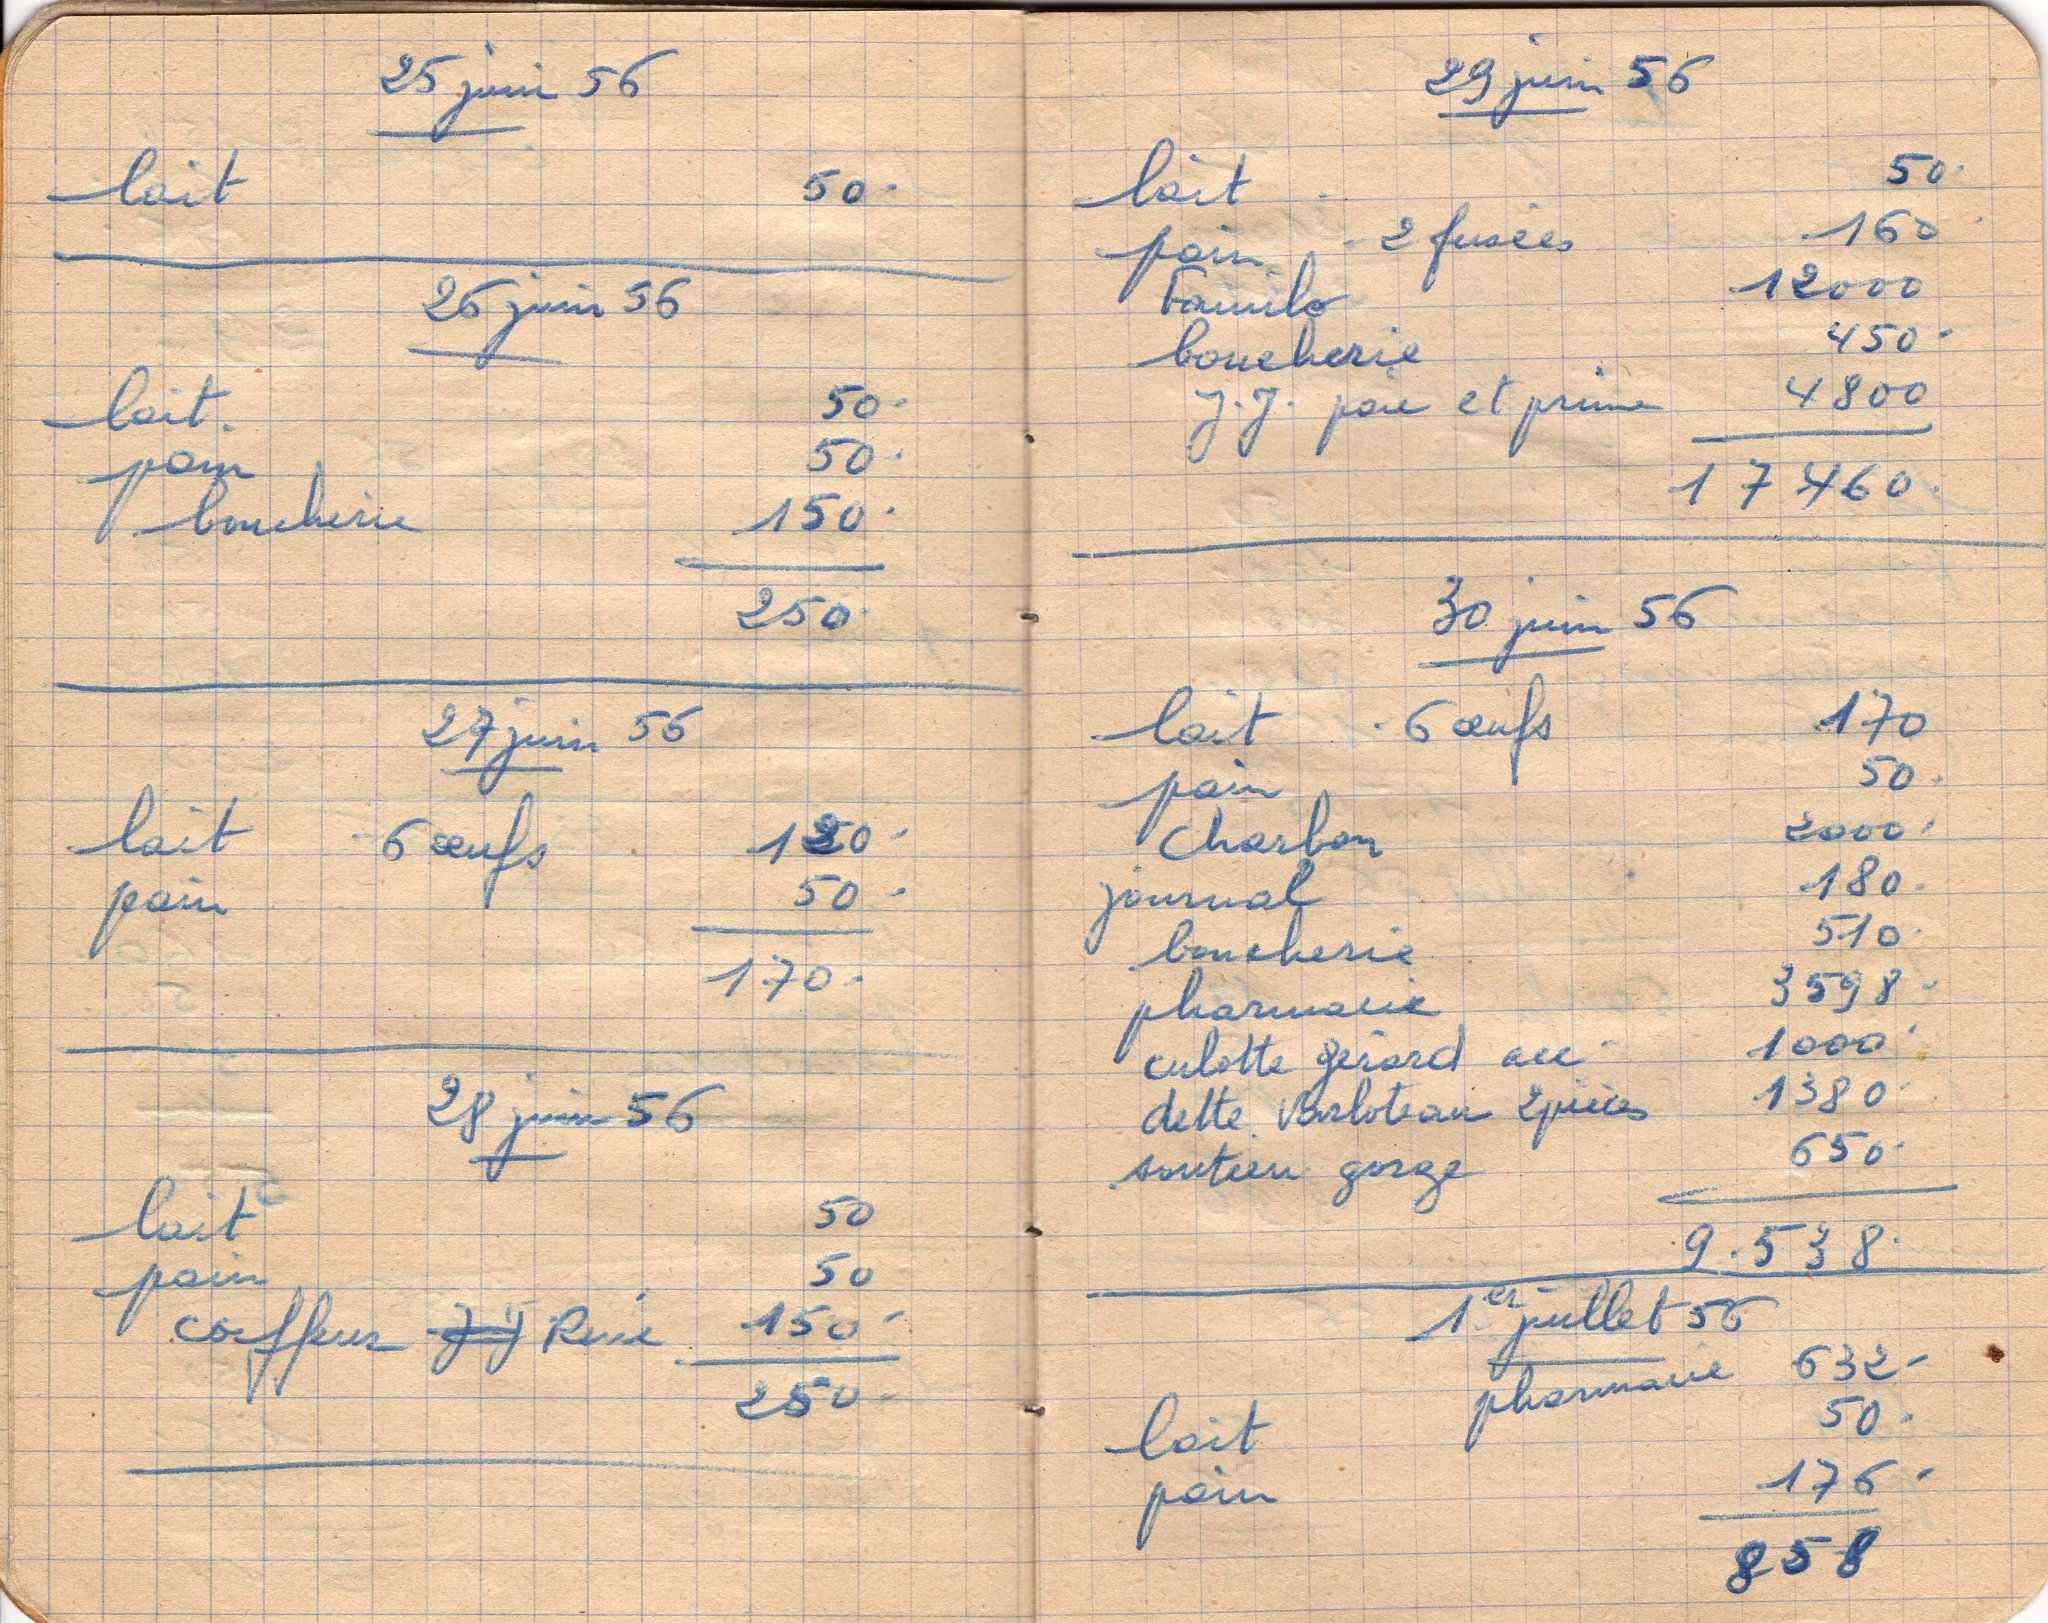 25 juin 56
lait 50.
26 juin 56
lait. 50.
pain 50.
boucherie 150.
250.
27 juin 56
lait - 6 œufs 120.
pain 50.
170.
28 juin 56
lait 50
pain 50
coiffeur JJ René 150.
250.
29 juin 56
lait 50.
pain - 2 fusées 160
12000
boucherie 450.
J.J. paie et prime 4800
17460.
30 juin 56
lait - 6 œufs 170
pain 50.
Charbon 2000.
journal 180.
boucherie 510.
pharmacie 3598.
culotte gérard acc 1000.
dette 1380.
soutien gorge 650.
9.538.
1er juillet 56
pharmacie 632-
lait 50.
pain 176.
858